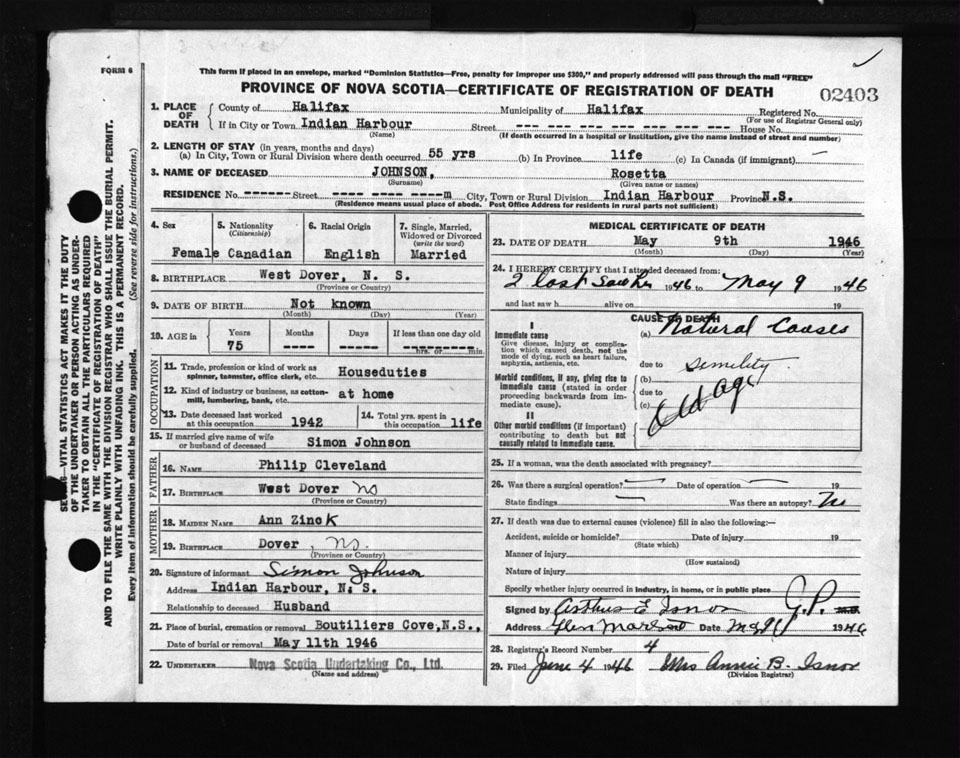 FORM 6
This form if placed in an envelope, marked "Dominion Statistics—Free, penalty for improper use $300," and properly addressed will pass through the mail "FREE"
PROVINCE OF NOVA SCOTIA—CERTIFICATE OF REGISTRATION OF DEATH
02403
1. PLACE OF DEATH
County of Halifax Municipality of Halifax Registered No.
(For use of Registrar General only)
If in City or Town Indian Harbour Street --- --- --- --- --- --- --- House No.
(Name) (If death occurred in a hospital or institution, give the name instead of street and number)
2. LENGTH OF STAY (in years, months and days)
(a) In City, Town or Rural Division where death occurred 55 yrs (b) In Province life (c) In Canada (if immigrant) —
3. NAME OF DECEASED JOHNSON, Rosetta
(Surname) (Given name or names)
RESIDENCE No. ------ Street ---- ---- ----m City, Town or Rural Division Indian Harbour Province N.S.
(Residence means usual place of abode. Post Office Address for residents in rural parts not sufficient)
4. Sex 5. Nationality (Citizenship) 6. Racial Origin 7. Single, Married, Widowed or Divorced (write the word)
Female Canadian English Married
8. BIRTHPLACE West Dover, N. S.
(Province or Country)
9. DATE OF BIRTH Not known
(Month) (Day) (Year)
10. AGE in Years Months Days If less than one day old
75 ------ ------ ---------- hrs. or min.
OCCUPATION
11. Trade, profession or kind of work as spinner, teamster, office clerk, etc. Houseduties
12. Kind of industry or business, as cotton-mill, lumbering, bank, etc. at home
13. Date deceased last worked at this occupation 1942 14. Total yrs. spent in this occupation life
15. If married give name of wife or husband of deceased Simon Johnson
FATHER
16. NAME Philip Cleveland
17. BIRTHPLACE West Dover NS
(Province or Country)
MOTHER
18. MAIDEN NAME Ann Zinck
19. BIRTHPLACE Dover, NS.
(Province or Country)
20. Signature of informant Simon Johnson
Address Indian Harbour, N. S.
Relationship to deceased Husband
21. Place of burial, cremation or removal Boutiliers Cove, N.S.,
Date of burial or removal May 11th 1946
22. UNDERTAKER Nova Scotia Undertaking Co., Ltd.
(Name and address)
MEDICAL CERTIFICATE OF DEATH
23. DATE OF DEATH May 9th 1946
(Month) (Day) (Year)
24. I HEREBY CERTIFY that I attended deceased from:
I last saw her 1946 to May 9 1946
and last saw h alive on 19
CAUSE OF DEATH
I
Immediate cause (a) Natural Causes
Give disease, injury or complication which caused death, not the mode of dying, such as heart failure, asphyxia, asthenia, etc.
due to senility
Morbid conditions, if any, giving rise to immediate cause (stated in order proceeding backwards from immediate cause).
(b)
due to
(c) Old age
II
Other morbid conditions (if important) contributing to death but not causally related to immediate cause.
25. If a woman, was the death associated with pregnancy?
26. Was there a surgical operation? — Date of operation — 19
State findings — Was there an autopsy? No
27. If death was due to external causes (violence) fill in also the following:—
Accident, suicide or homicide? Date of injury 19
(State which)
Manner of injury
(How sustained)
Nature of injury
Specify whether injury occurred in industry, in home, or in public place
Signed by Arthur E Isnor J.P. M.D.
Address Glen Margaret Date May 1946
28. Registrar's Record Number 4
29. Filed June 4 1946 Mrs Annie B. Isnor
(Division Registrar)
VITAL STATISTICS ACT MAKES IT THE DUTY
OF THE UNDERTAKER OR PERSON ACTING AS UNDER-
TAKER TO OBTAIN ALL THE PARTICULARS REQUIRED
IN THE "CERTIFICATE OF REGISTRATION OF DEATH"
AND TO FILE THE SAME WITH THE DIVISION REGISTRAR WHO SHALL ISSUE THE BURIAL PERMIT.
WRITE PLAINLY WITH UNFADING INK. THIS IS A PERMANENT RECORD.
Every item of information should be carefully supplied. (See reverse side for instructions.)